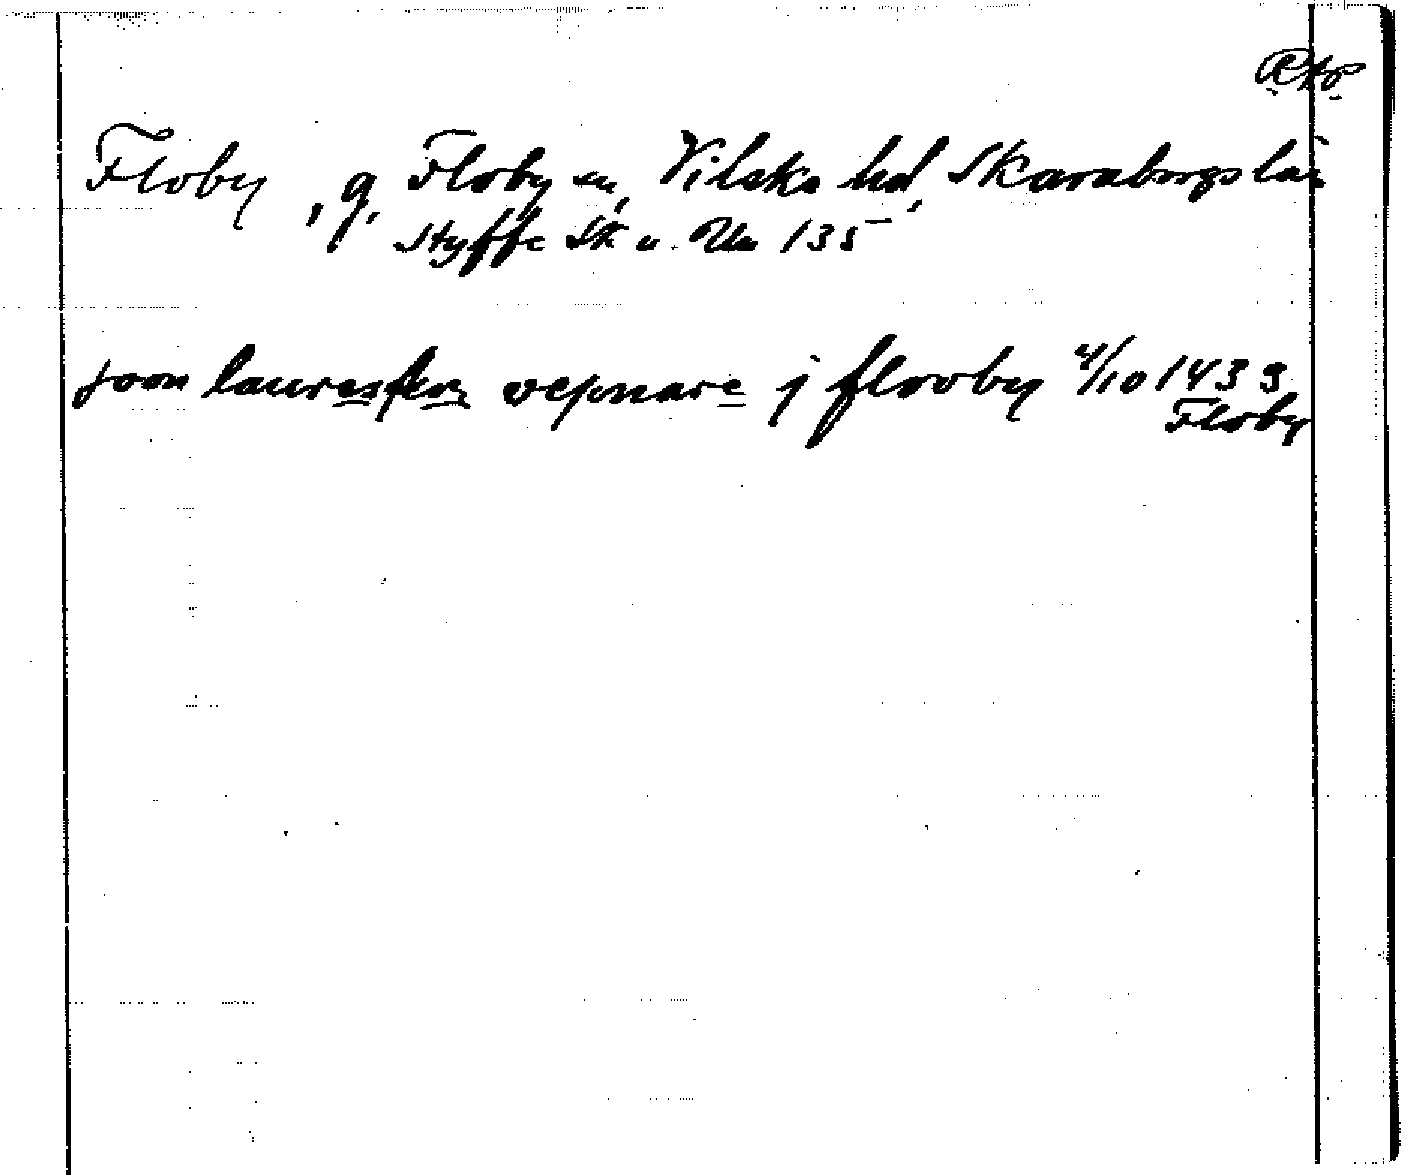 RAp
Floby, g, Floby sn, Vilske hd, Skaraborgs län
Styffe Sk u. Un 135
joon lauresson vepnare j flooby 4/10 1439
Floby